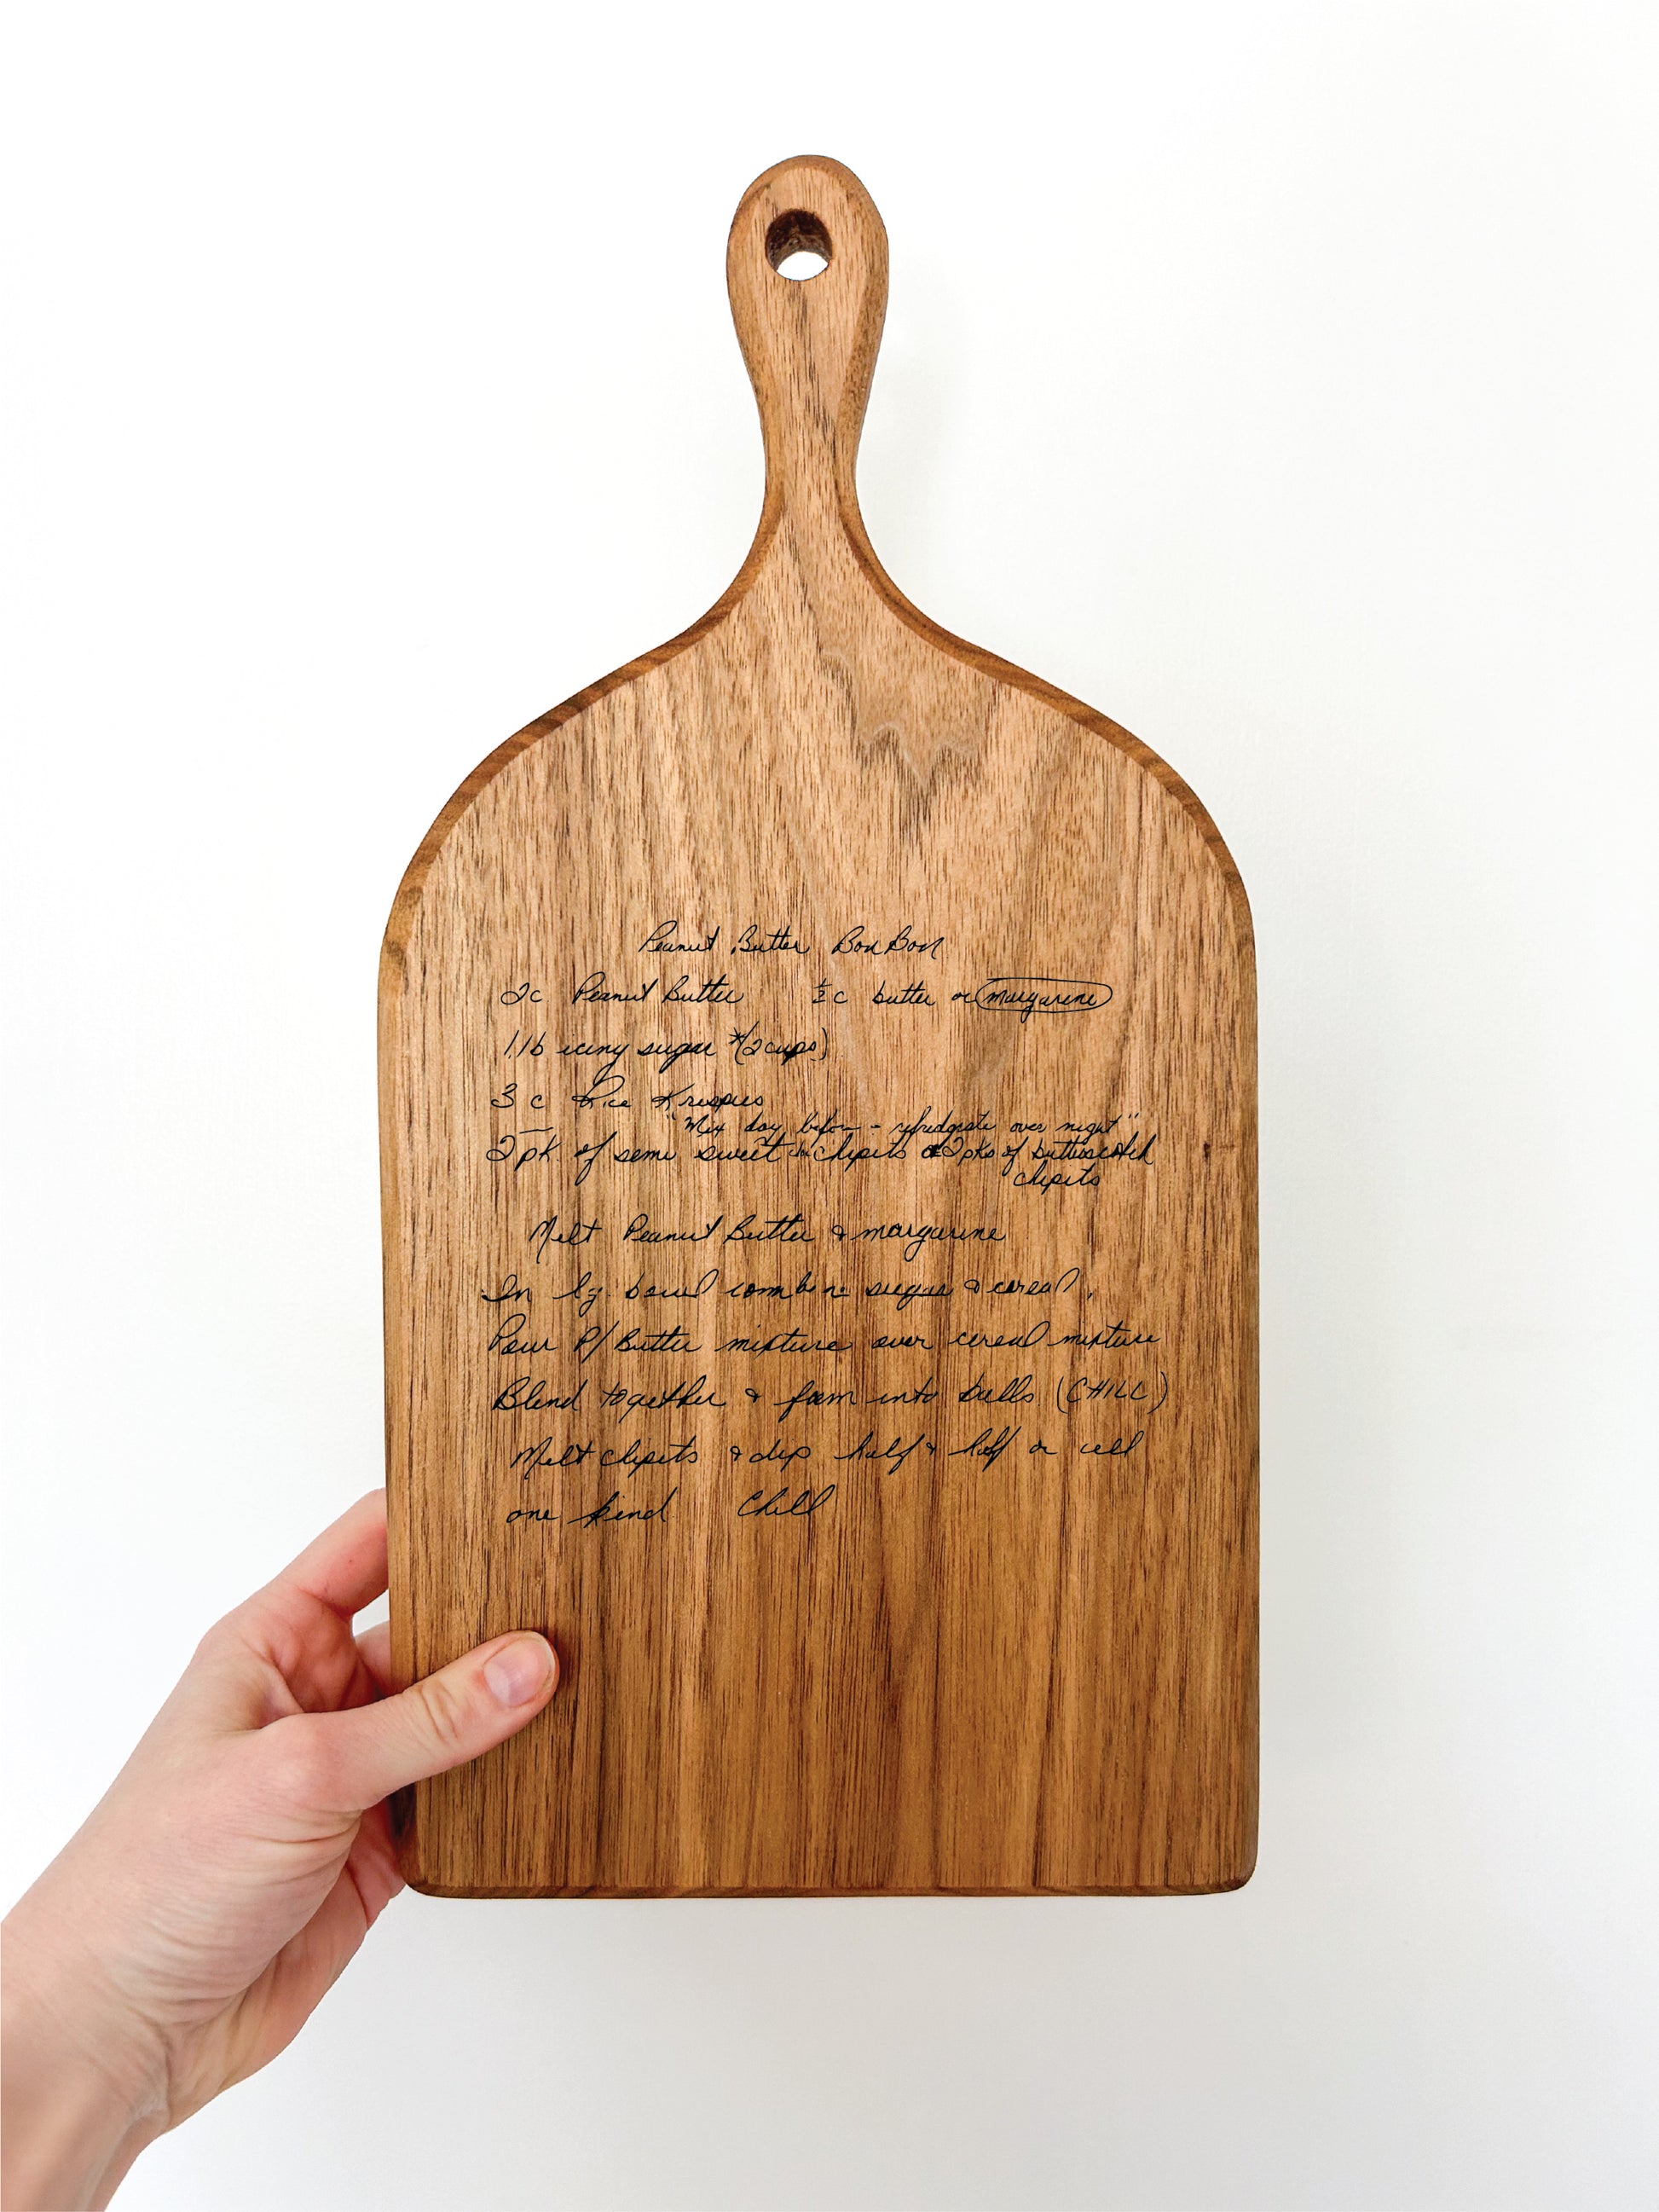 Peanut Butter Bon Bon
2c Peanut Butter ½ c butter or margarine
1 lb icing sugar *(2 cups)
3 c Rice Krispies
"Mix day before - refridgrate over night"
2 pk of semi sweet chipits or 2 pks of butterscotch
chipits
Melt Peanut Butter & margarine
In lg. bowl combine sugar & cereal.
Pour P/Butter mixture over cereal mixture
Blend together & form into balls (CHILL)
Melt chipits & dip half & half or all
one kind Chill